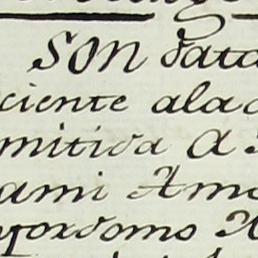 SON data
ciente ala
mitida A
ami Amo
yordomo